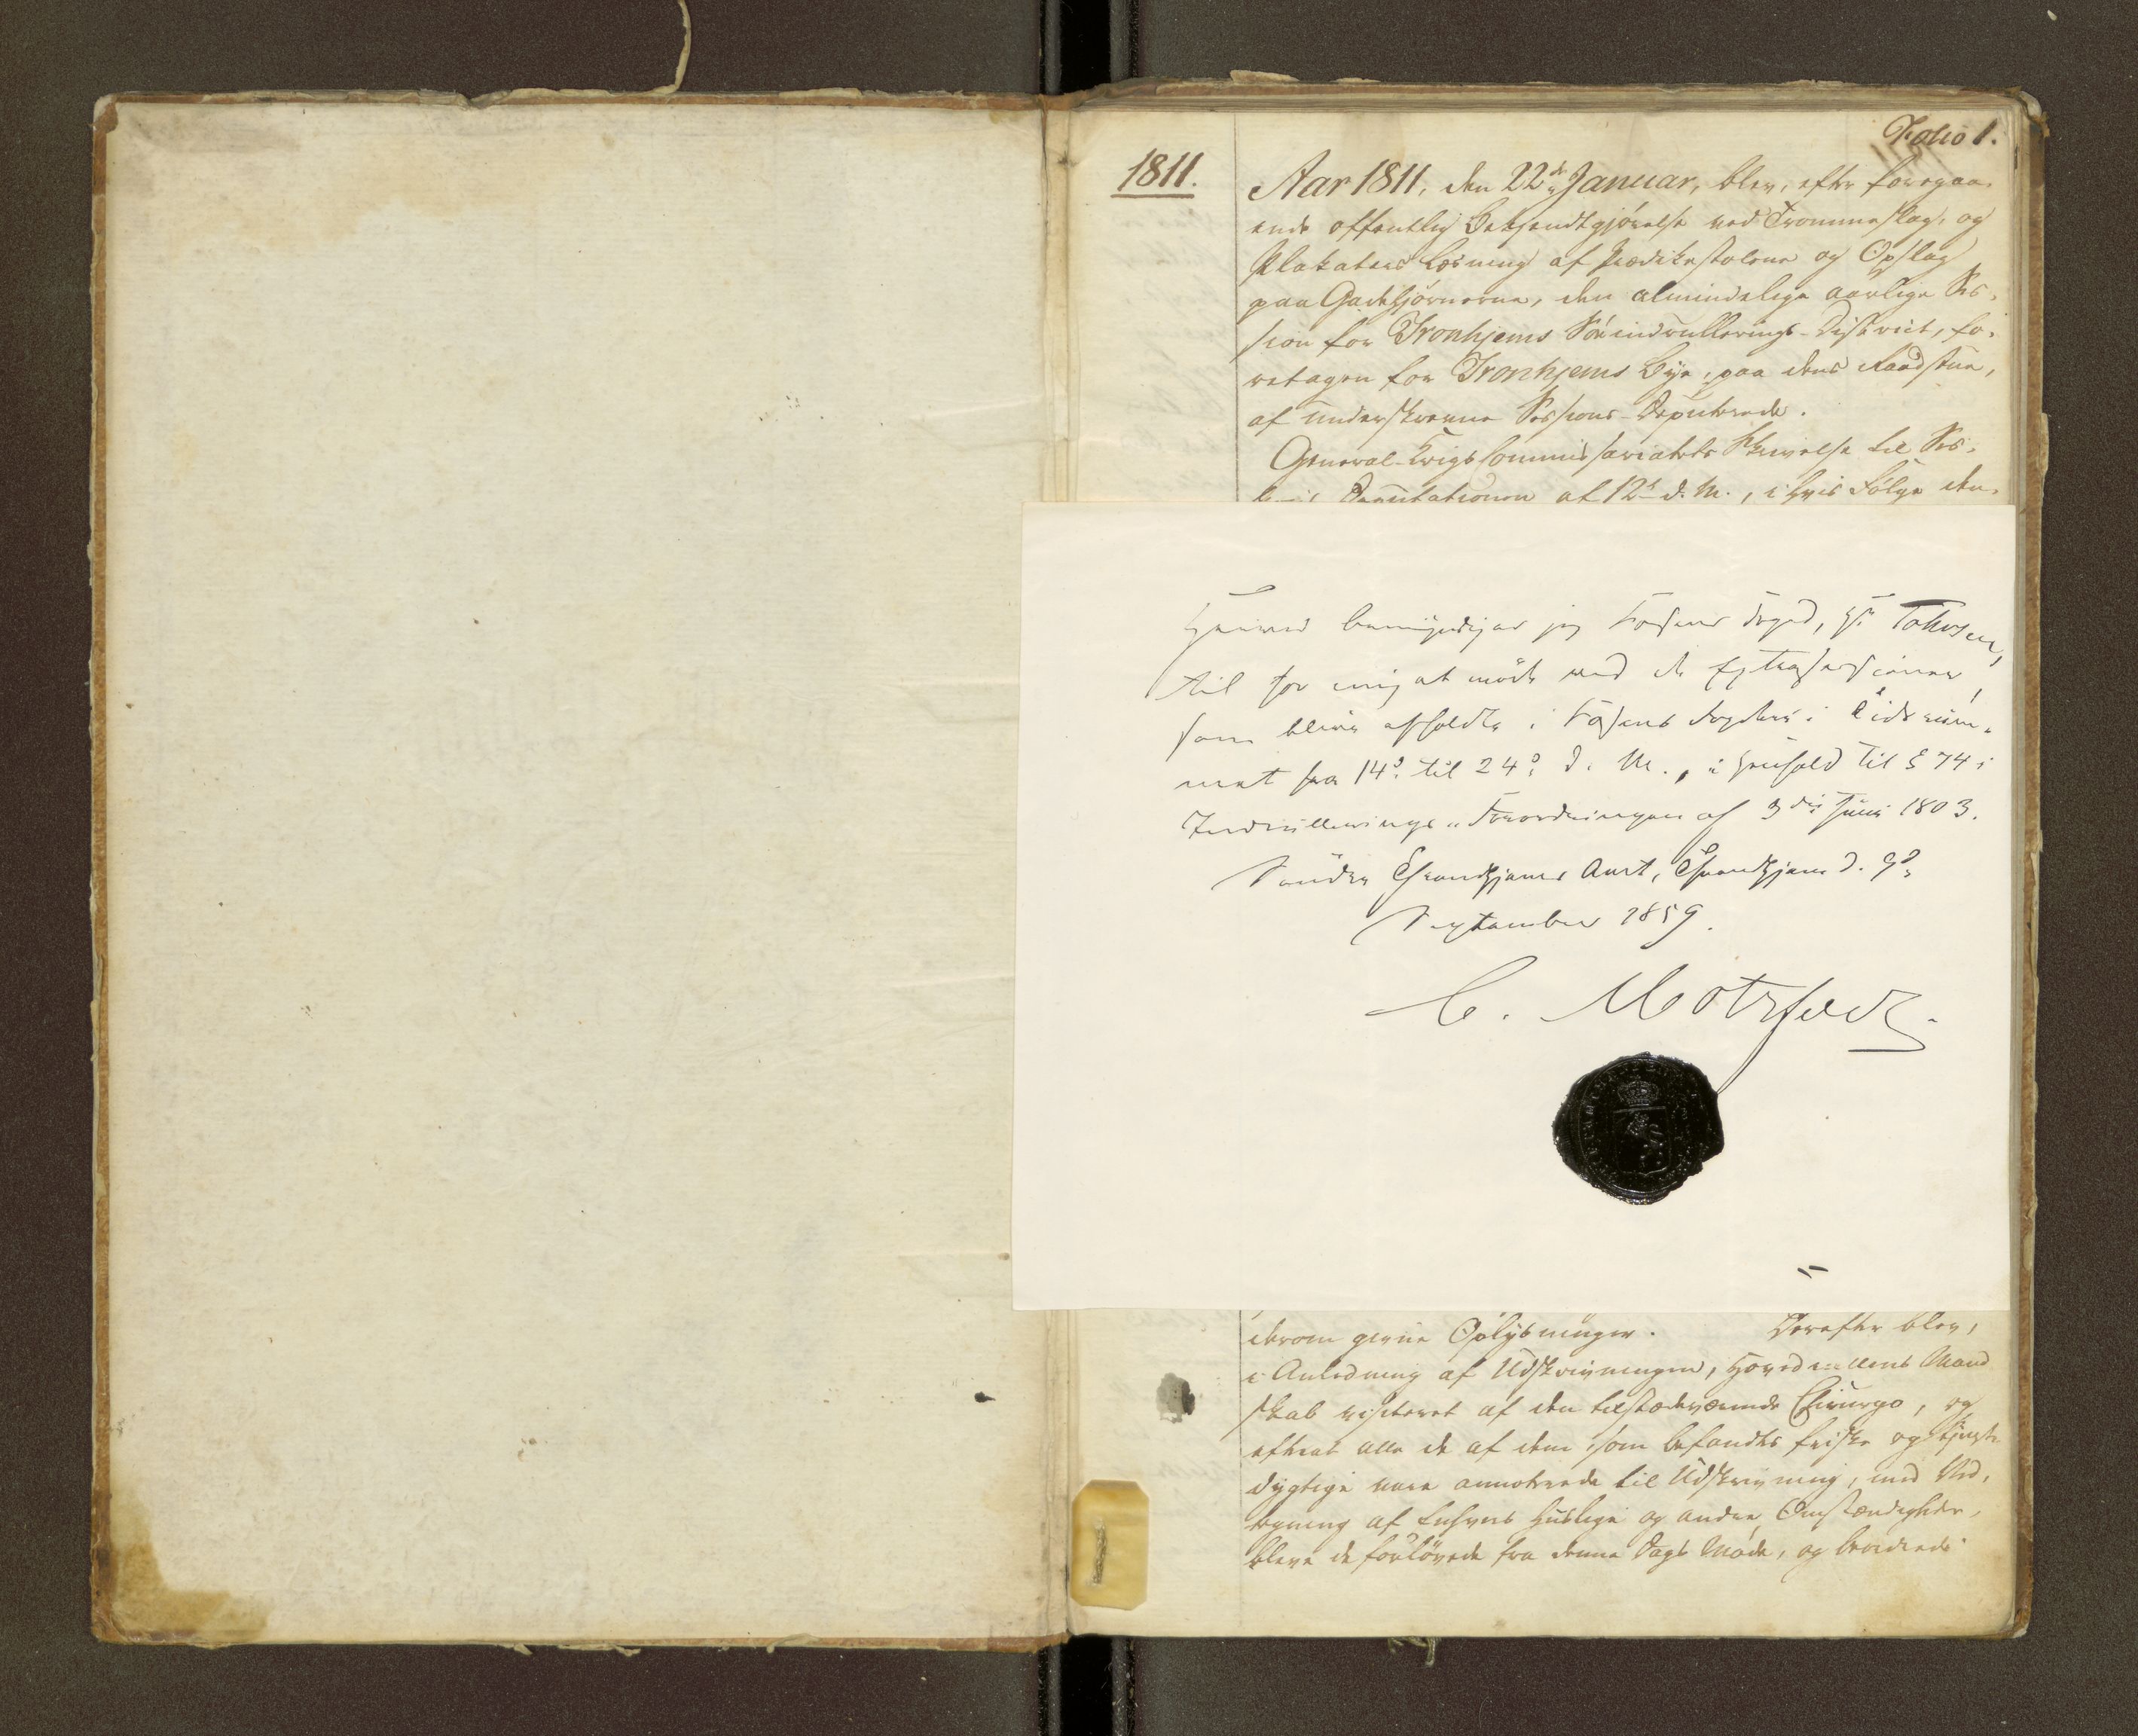 Folio 1.
1811.
Aar 1811, den 22de Januar, blev, efter foregaa-
ende offentlig Bekjendtgjörelse ved Trommeslag, og
Plakaters Læsning af Prædikestolene og Opslag
paa Gadehjørnerne, den almindelige aarlige Ses-
sion for Tronhjems Söeindrullerings-District, fo-
retagen for Tronhjems Bye, paa dens Raadstue,
af underskrevne Sessions-Deputerede.
General-Krigscommissariatets Skrivelse til Ses-
Deputationen af 12te d. M., i hvis Fölge den
Herved bemyndiger jeg Fosens Foged, Hr
til for mig at möde ved de Extrasessioner,
som blive afholdte i Fosens Fogderi i Tidsrum-
met fra 14de til 24de d. M., i Henhold til § 74 i
Indrullerings-Forordningen af 3die Juni 1803.
Söndre Throndhjems Amt, Throndhjem d. 9de
September 1859.
C. Motzfeldt
derom givne Oplysninger. Derefter blev,
i Anledning af Udskrivningen, Hovedrullens Mand
skab visiteret af den tilstædeværende Chirurgo, og
efterat alle de af dem, som befandtes friske og tjenst-
dygtige vare annoterede til Udskrivning, med Ved-
tegning af Enhvers huslige og andre Omstændigheder,
bleve de forlövede fra denne Dags Möde, og beordrede